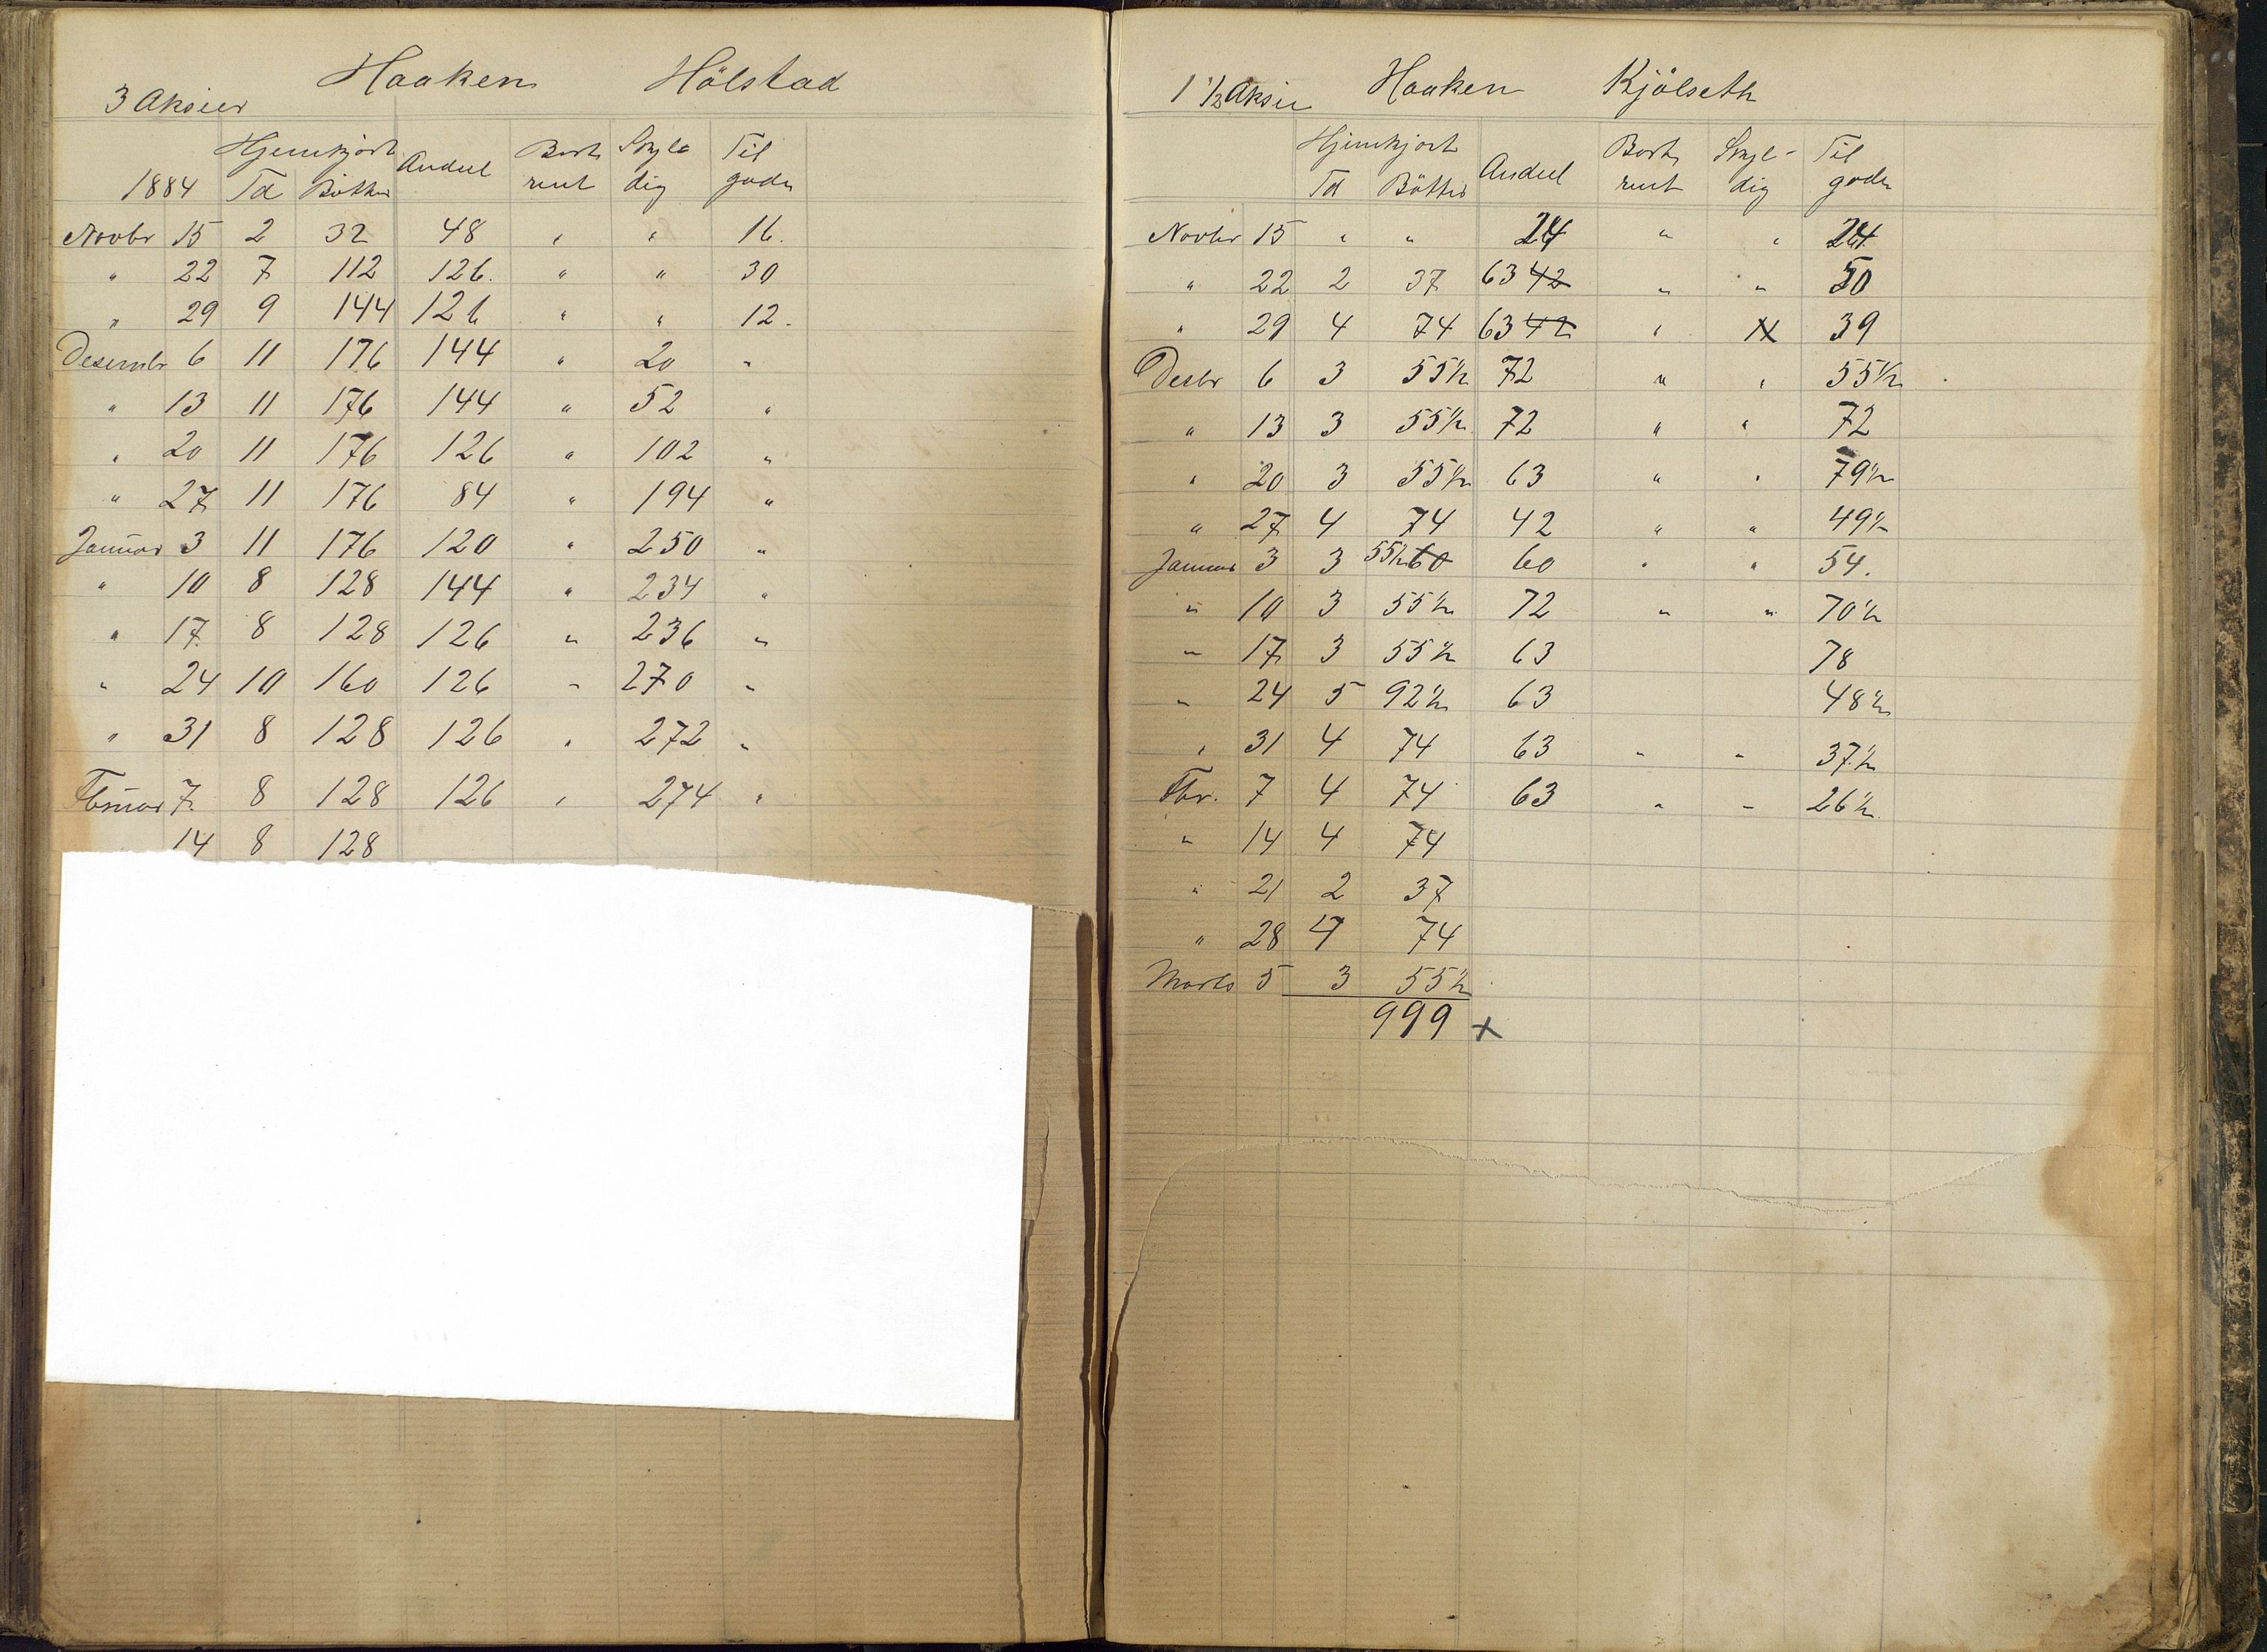 Haaken Hölstad
3 Aksier
Hjemkjört Andeel Bort Skyl Til
1884 Td Bötter rent dig gode
Novbr 15 2 32 48 " " 16.
" 22 7 112 126. " " 30
" 29 9 144 126 " " 12.
Desembr 6 11 176 144 " 20 "
" 13 11 176 144 " 52 "
" 20 11 176 126 " 102 "
" 27 11 176 84 " 194 "
Januar 3 11 176 120 " 250 "
" 10 8 128 144 " 234 "
" 17 8 128 126 " 236 "
" 24 10 160 126 " 270 "
" 31 8 128 126 " 272 "
Februar 7. 8 128 126 " 274 "
14 8 128
1 1/2 Aksie Haaken Kjölseth
Hjemkjört Andeel Bort Skyl- Til
Td Bötter rent dig gode
Novbr 15 " " 24 " " 24.
" 22 2 37 63 42 " " 50
" 29 4 74 63 42 " 39
Desbr 6 3 55 1/2 72 " " 55 1/2
" 13 3 55 1/2 72 " " 72
" 20 3 55 1/2 63 " " 79 1/2
" 27 4 74 42 " " 49 1/2
Januar 3 3 55 1/2 60 60 " " 54.
" 10 3 55 1/2 72 " " 70 1/2
" 17 3 55 1/2 63 78
" 24 5 92 1/2 63 48 1/2
" 31 4 74 63 " " 37 1/2
Fbr. 7 4 74 63 " " 26 1/2
" 14 4 74
" 21 2 37
" 28 4 74
Marts 5 3 55 1/2
999 +